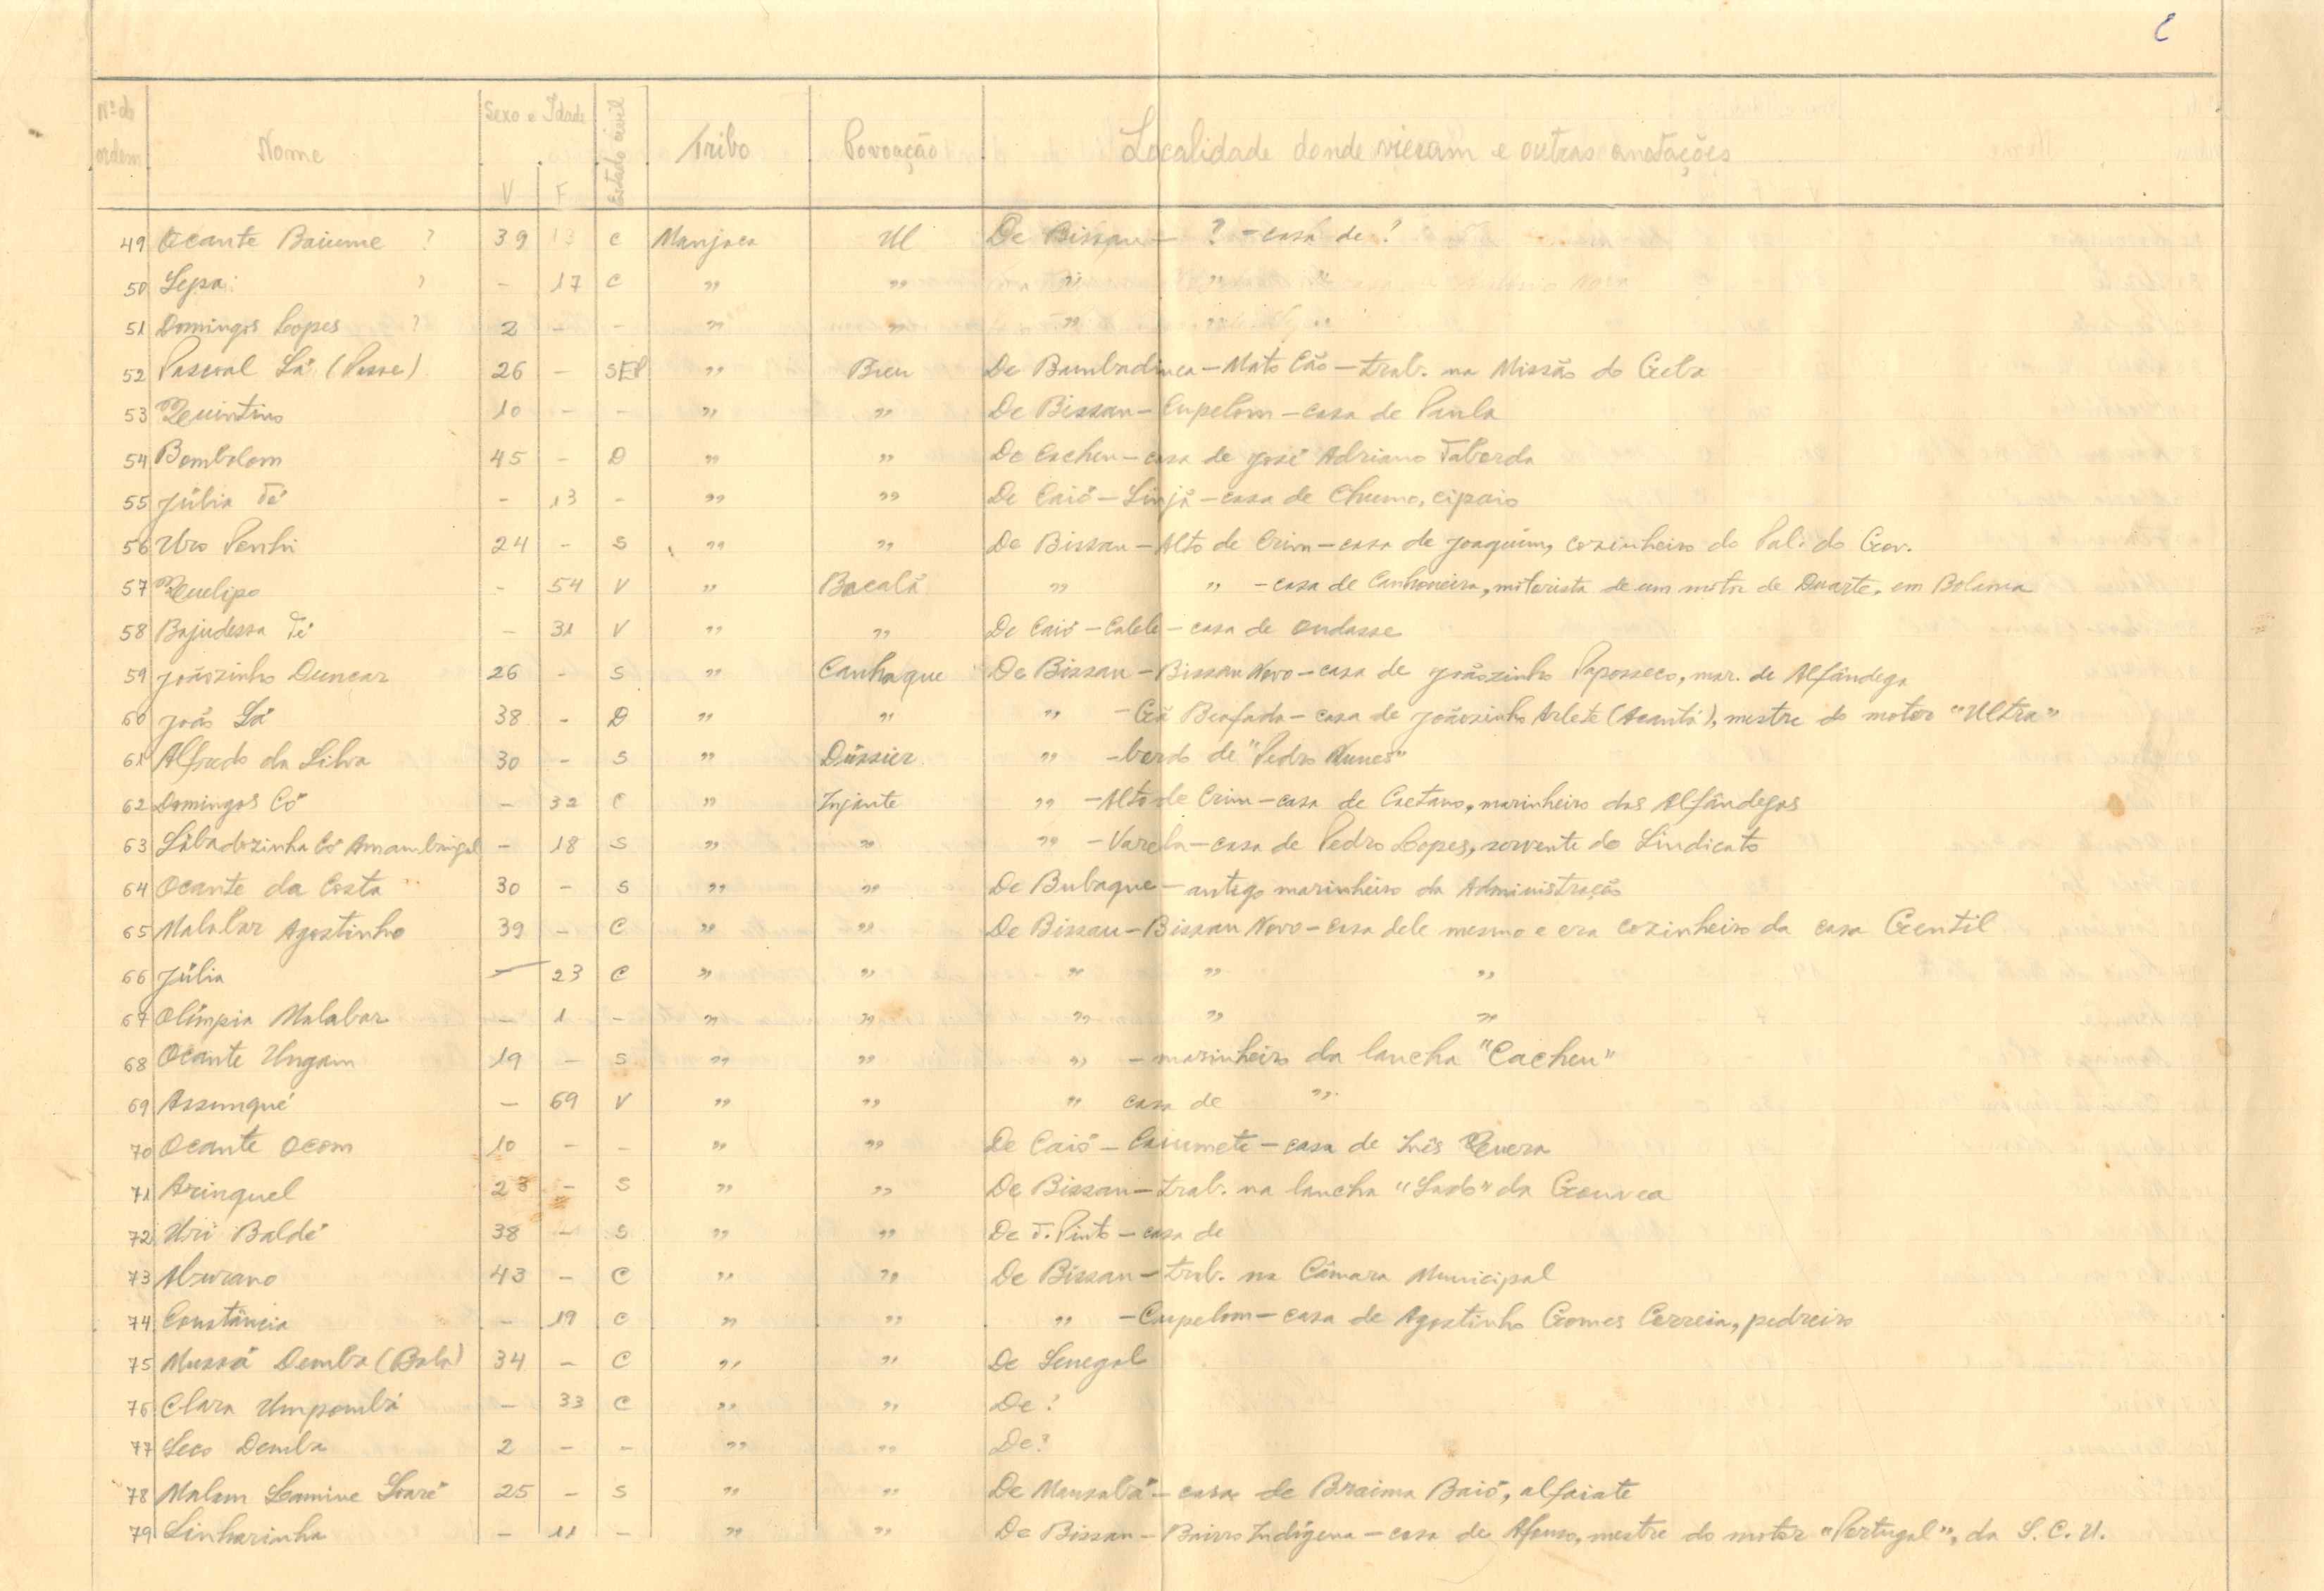 Nº de ordem | Nome | Sexo e Idade V F | Estado civil | Tribo | Povoação | Localidade donde vieram e outras anotações
49 Ocante Baiume ? 39 13 C Manjaca Ul De Bissau – ? – casa de ?
50 Sepa ? – 17 C " " " " "
51 Domingos Lopes ? 2 – – " " " " "
52 Pascoal Sá (Posse) 26 – SEP " Bieu De Bambadinca – Mato Cão – trab. na Missão do Geba
53 Quintino 10 – – " " De Bissau – Cupelom – casa de Paula
54 Bombolom 45 – D " " De Cacheu – casa de José Adriano Taborda
55 Júlia Té – 13 – " " De Caió – Sinjã – casa de Chumo, cipaio
56 Ubro Penhi 24 – S " " De Bissau – Alto de Crim – casa de Joaquim, cozinheiro do Pal. do Gov.
57 Quelipo – 54 V " Bacalã " " – casa de Canhoneira, motorista de um motor de Duarte, em Bolama
58 Bajudessa Té – 31 V " " De Caió – Calele – casa de Ondasse
59 Joãozinho Duncar 26 – S " Canhaque De Bissau – Bissau Novo – casa de Joãozinho Paposseco, mar. de Alfândega
60 João Sá 38 – D " " " – Gã Beafada – casa de Joãozinho Arlete (Acantó), mestre do motor "Ultra"
61 Alfredo da Silva 30 – S " Dússier " – bordo de "Pedro Nunes"
62 Domingas Có – 32 C " Injante " – Alto de Crim – casa de Caetano, marinheiro das Alfândegas
63 Sábadozinha Có – 18 S " " " – Varela – casa de Pedro Lopes, servente do Sindicato
64 Ocante da Costa 30 – S " " De Bubaque – antigo marinheiro da Administração
65 Malabar Agostinho 39 – C " " De Bissau – Bissau Novo – casa dele mesmo e era cozinheiro da casa Gentil
66 Júlia – 23 C " " " " "
67 Olímpia Malabar – 1 – " " " " "
68 Ocante Ungam 19 – S " " " – marinheiro da lancha "Cacheu"
69 Assunqué – 69 V " " " casa de "
70 Ocante Ocom 10 – – " " De Caió – Caiumete – casa de Inês Quera
71 Arinquel 23 – S " " De Bissau – trab. na lancha "Sado" da Gouvea
72 Uri Baldé 38 – S " " De T. Pinto – casa de
73 Alourano 43 – C " " De Bissau – trab. na Câmara Municipal
74 Constância – 19 C " " " – Cupelom – casa de Agostinho Gomes Correia, pedreiro
75 Mussá Demba (Bala) 34 – C " " De Senegal
76 Clara Umpombá – 33 C " " De ?
77 Seco Demba 2 – – " " De ?
78 Malam Lamine Soaré 25 – S " " De Mansabá – casa de Braima Baió, alfaiate
79 Sinharinha – 11 – " " De Bissau – Bairro Indígena – casa de Afonso, mestre do motor "Portugal", da S. C. U.